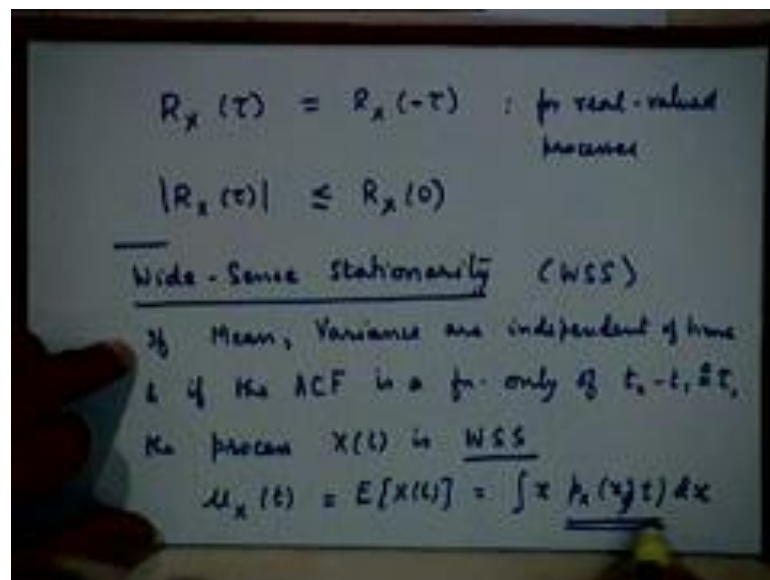 R_X (τ) = R_X (-τ) : for real-valued
processes
|R_X (τ)| ≤ R_X (0)
Wide-Sense Stationarity (WSS)
If Mean, Variance are independent of time
& if the ACF is a fn. only of t₂-t₁ ≜ τ,
the process X(t) is WSS
μ_X (t) = E[X(t)] = ∫ x p_X (x; t) dx